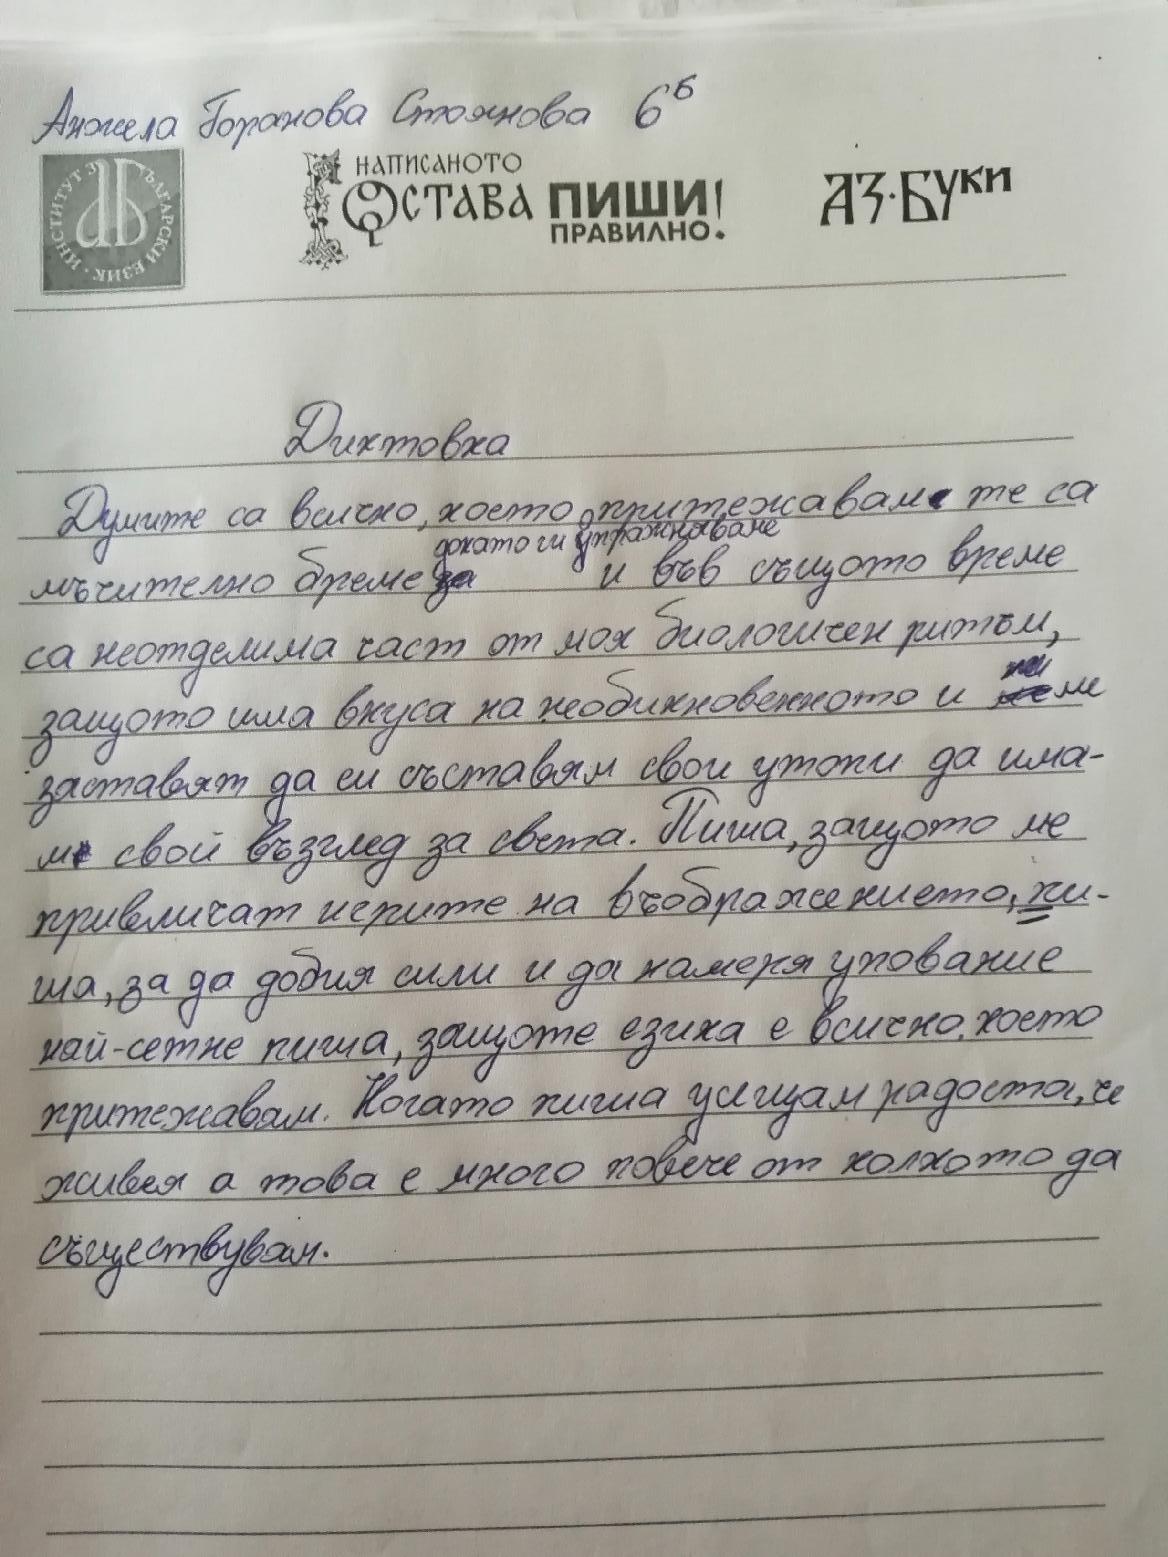 Анжела Горанова Стоянова 6б
ИНСТИТУТ ЗА БЪЛГАРСКИ ЕЗИК
НАПИСАНОТО
ОСТАВА ПИШИ!
ПРАВИЛНО.
АЗ·БУКИ
Диктовка
Думите са всичко, което притежавам те са
докато ги упражняваме
мъчително бреме за и във същото време
са неотделима част от моя биологичен ритъм,
защото има вкуса на необикновенното и ме
заставят да си съставям свои утопи да има-
м свой възглед за света. Пиша, защото ме
привличат игрите на въображението, пи-
ша, за да добия сили и да намеря упование
най-сетне пиша, защоте езика е всичко, което
притежавам. Когато пиша усещам радоста, че
живея а това е много повече от колкото да
съществувам.